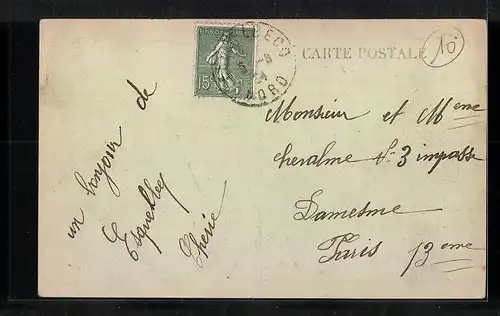 CARTE POSTALE
10
REPUBLIQUE FRANÇAISE
15
NORD
un bonjour de
Esquelbecq
Cherie
Monsieur et Mme
No 3 impasse
Damesme
Paris 13eme